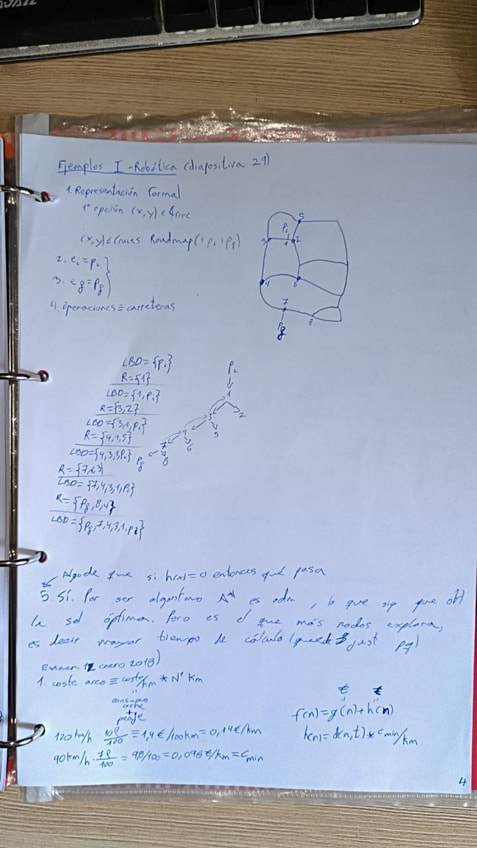 Ejemplos I - Robótica (diapositiva 21)
1. Representación formal
1ª opción (x,y) ∈
(x,y) ∈ Cruces Roadmap (+pi +pg)
2. ei = pi
3. eg = Pg
4. Operaciones = carreteras
5
Pi
3 1 2
4 6
7
8
Pg
LBD = {Pi}
R = {1}
LBD = {1, Pi}
R = {3,2}
LBD = {3,1,Pi}
R = {4,1,5}
LBD = {4,3,1,Pi}
R = {7,6,3}
LBD = {7,4,3,1,Pi}
R = {Pg,8,4}
LBD = {Pg,7,4,3,1,Pi}
Pi
1
3 2
4 5
7 6
Pg 8
que si h(n)=0 entonces qué pasa
5. Sí. Por ser algoritmo A* es adm, lo que sig que obt
la sol óptima. Pero es el que más nodos explora,
es decir mayor tiempo de cálculo ( just
Examen enero 2018)
1. coste arco = coste/km * Nº km
consumo
coche
+
peaje
120 km/h · /100 = 1,4€/100km = 0,14€/km
90km/h · /100 = 9,8/100 = 0,098€/km = Cmin
€ €
f(n) = g(n) + h(n)
h(n) = d(n,t) * Cmin/km
4